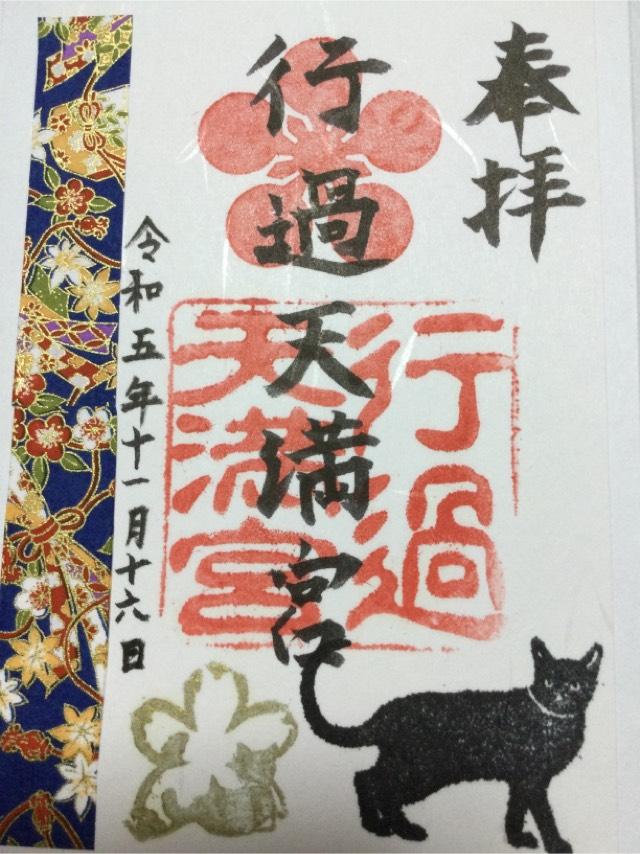 奉拝
行過天満宮
行過
天満宮
令和五年十一月十六日